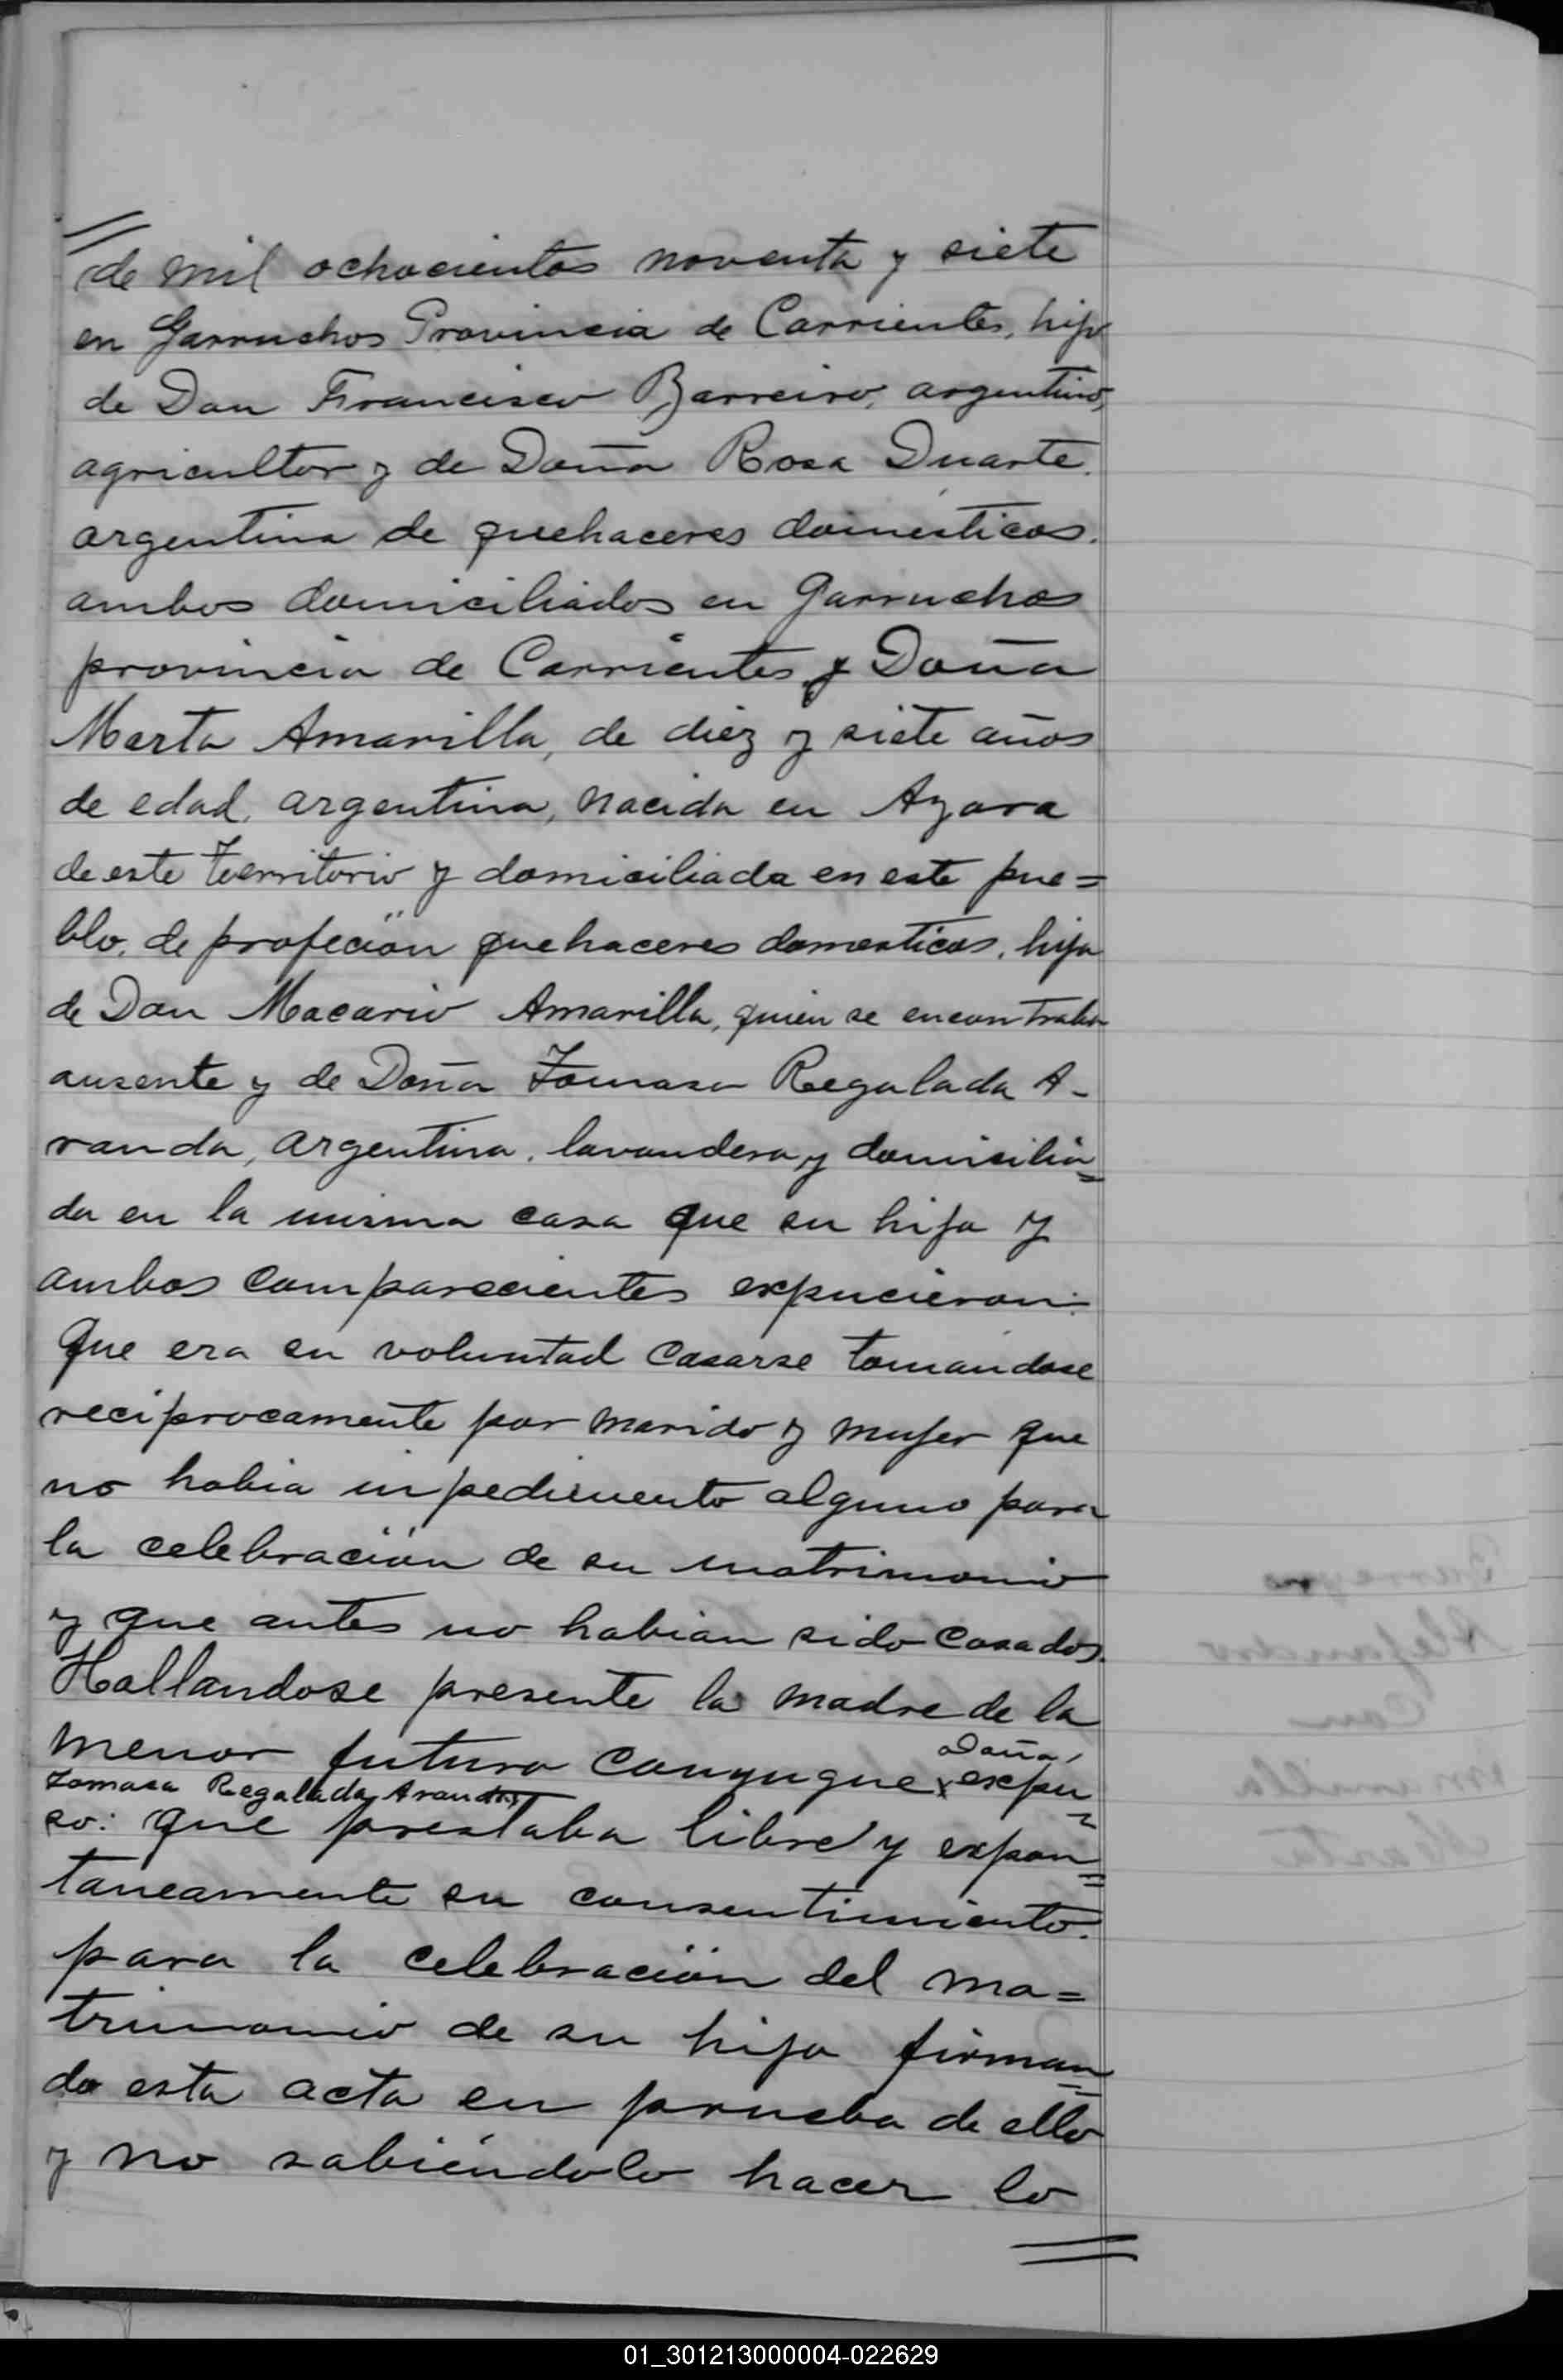 de mil ochocientos noventa y siete
en Garruchos Provincia de Corrientes, hijo
de Don Francisco Barreiro, argentino,
agricultor y de Doña Rosa Duarte.
argentina de quehaceres domésticos.
ambos domiciliados en Garruchos
provincia de Corrientes y Doña
Marta Amarilla, de diez y siete años
de edad, argentina, nacida en Azara
de este territorio y domiciliada en este pue=
blo, de profeción quehaceres domesticos, hija
de Don Macario Amarilla, quien se encontraba
ausente y de Doña Tomasa Regalada A-
randa, argentina, lavandera y domicilia=
da en la misma casa que su hija y
ambos comparecientes expucieron:
Que era su voluntad casarse tomandose
reciprocamente por marido y mujer que
no habia inpedimento alguno para
la celebración de su matrimonio
y que antes no habian sido casados.
Hallandose presente la madre de la
Doña
menor futura conyugue x expu=
Tomasa Regalada Aranda,
so: que prestaba libre y expon=
taneamente su consentimiento.
para la celebración del ma=
trimonio de su hija firman=
do esta acta en prueba de ello
y no sabiéndolo hacer lo
Alejandro
con
Marta
01_301213000004-022629